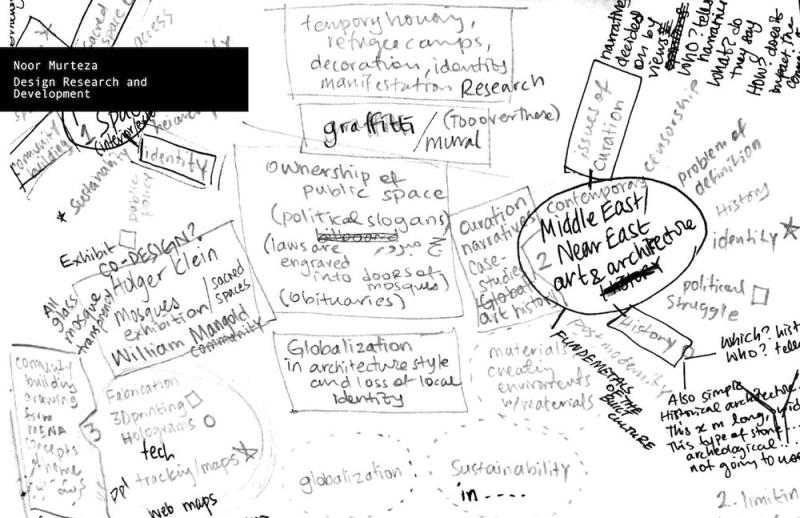 Noor Murteza
Design Research and
Development
sacred
space
access
1 Space
identity
community
building
Sustainability
public
policy
temporary housing,
refugee camps,
decoration, identity
manifestation Research
graffiti / (Too over there)
mural
Ownership of
public space
(political slogans)
(laws are
engraved
into doors of
mosques)
(Obituaries)
Globalization
in architecture style
and loss of local
identity
globalization
Sustainability
in ----
Exhibit
CO-DESIGN?
Holger Klein
mosques / sacred
exhibition spaces
William Mangold
community
All
glass
mosque
transparency
community
building
drawing
from
MENA
concepts
of home
3
Fabrication
3D printing
Holograms
tech
ppl tracking/maps
web maps
issues of
curation
narratives
decided
on by
views
WHO? tells
narrative
What? do
they say
How? does it
impact. The
censorship
problem of
definition
History
identity
political
struggle
contemporary
Middle East/
2 Near East
art & architecture
History
curation
narratives
case-
studies
Global
art history
History
Post modernity
FUNDEMETALS
OF THE
BUILT
CULTURE
materials
creating
environments
w/materials
Which? hist
WHO? telle
Also simple
Historical architecture
This x m long, wid
This type of stone...
archeological..
not going to use
2. limitin